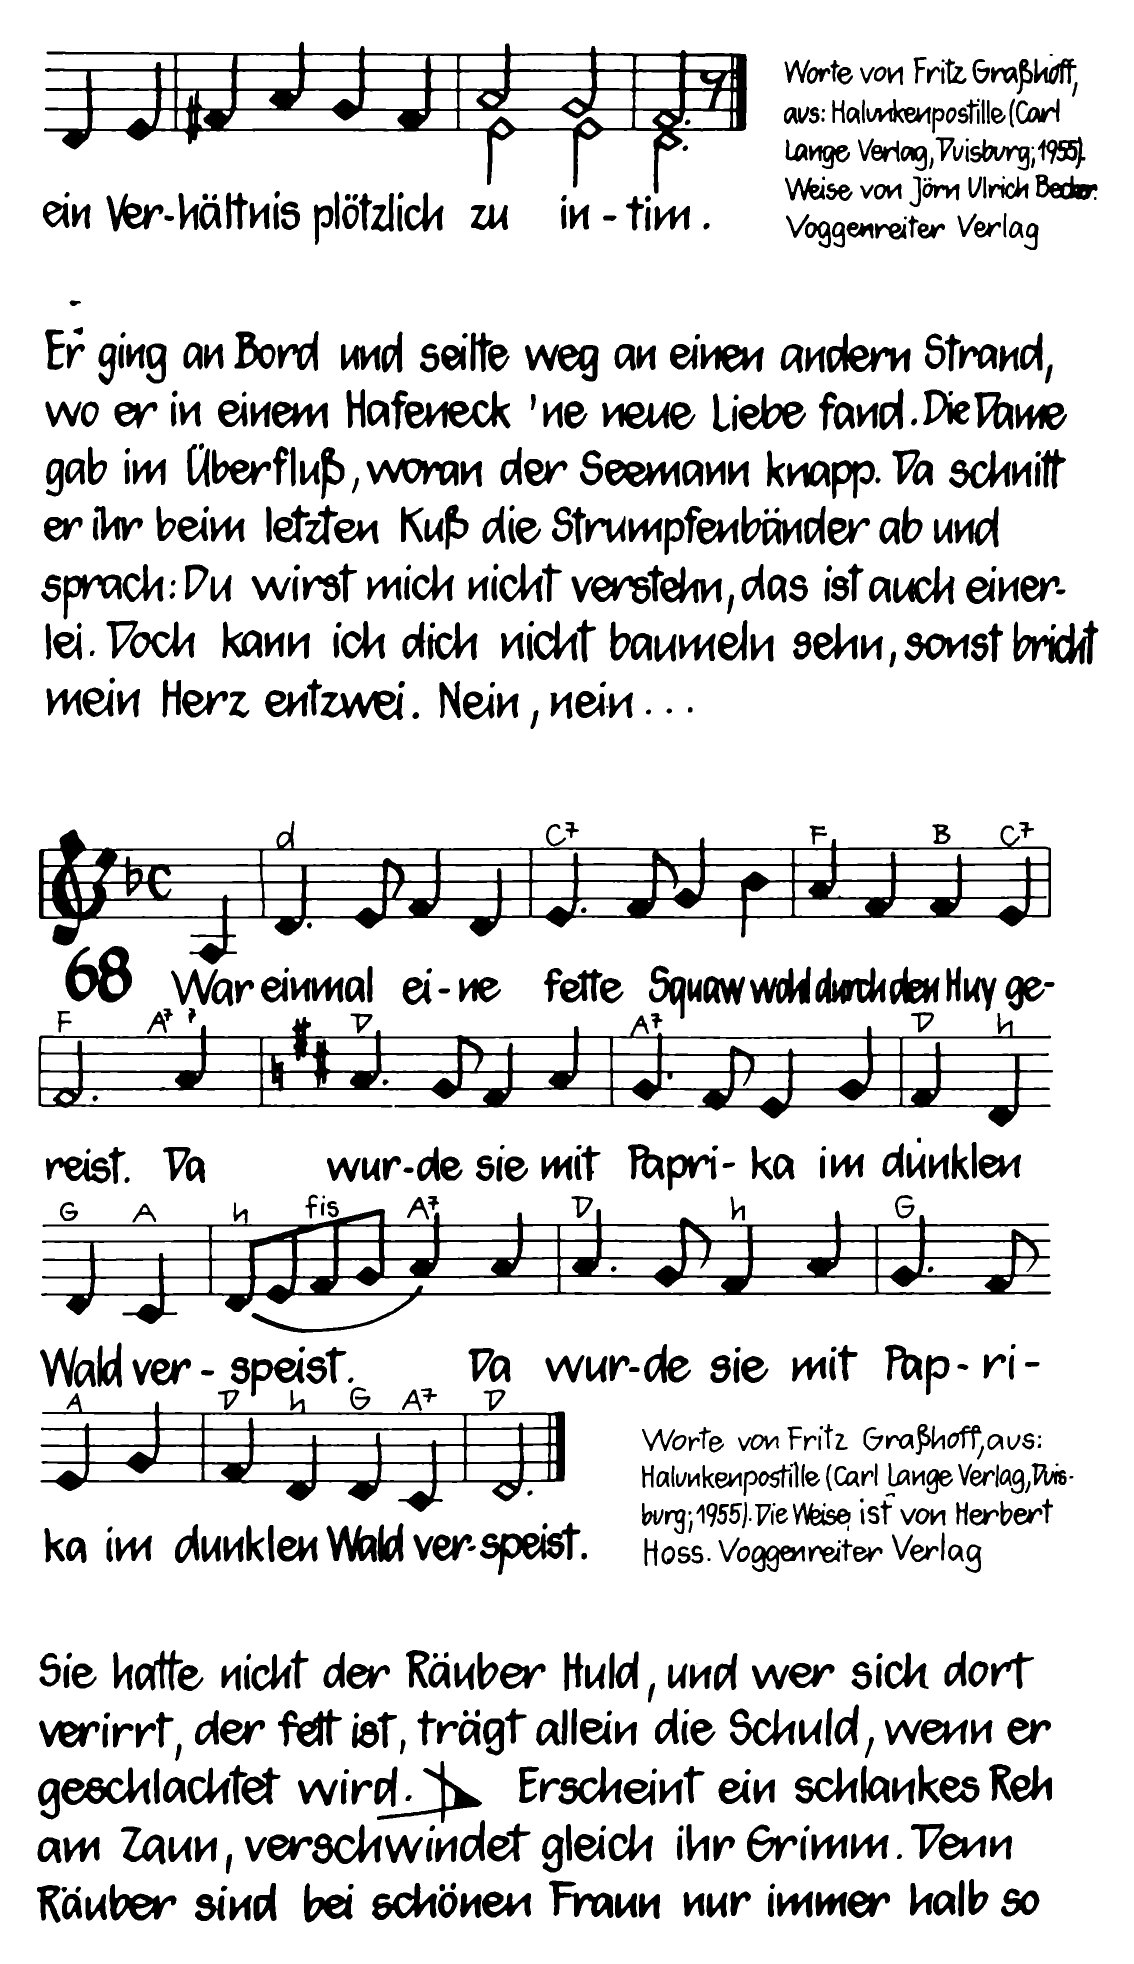 Worte von Fritz Graßhoff,
aus: Halunkenpostille (Carl
Lange Verlag, Duisburg; 1955).
Weise von Jörn Ulrich Becker.
Voggenreiter Verlag
ein Ver-hältnis plötzlich zu in-tim.
Er ging an Bord und seilte weg an einen andern Strand,
wo er in einem Hafeneck 'ne neue Liebe fand. Die Dame
gab im Überfluß, woran der Seemann knapp. Da schnitt
er ihr beim letzten Kuß die Strumpfenbänder ab und
sprach: Du wirst mich nicht verstehn, das ist auch einer-
lei. Doch kann ich dich nicht baumeln sehn, sonst bricht
mein Herz entzwei. Nein, nein...
d C7 F B C7
68 War einmal ei-ne fette Squaw wohl durch den Huy ge-
F A7 D A7 D h
reist. Da wur-de sie mit Papri-ka im dunklen
G A h fis A7 D h G
Wald ver-speist. Da wur-de sie mit Pap-ri-
A D h G A7 D
ka im dunklen Wald ver-speist.
Worte von Fritz Graßhoff, aus:
Halunkenpostille (Carl Lange Verlag, Duis-
burg; 1955). Die Weise ist von Herbert
Hoss. Voggenreiter Verlag
Sie hatte nicht der Räuber Huld, und wer sich dort
verirrt, der fett ist, trägt allein die Schuld, wenn er
geschlachtet wird. Erscheint ein schlankes Reh
am Zaun, verschwindet gleich ihr Grimm. Denn
Räuber sind bei schönen Fraun nur immer halb so